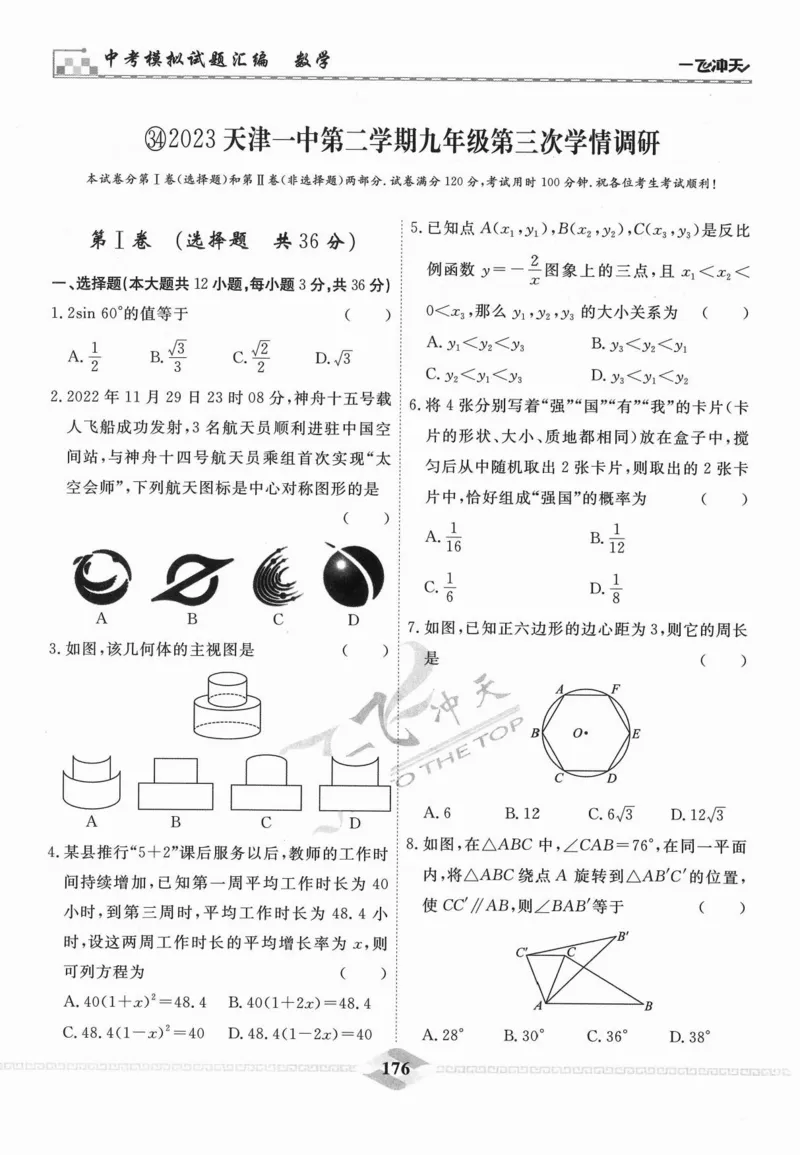 中考模拟试题汇编 数学
一飞冲天
㉞2023天津一中第二学期九年级第三次学情调研
本试卷分第Ⅰ卷(选择题)和第Ⅱ卷(非选择题)两部分.试卷满分120分,考试用时100分钟.祝各位考生考试顺利!
第Ⅰ卷 (选择题 共36分)
一、选择题(本大题共12小题,每小题3分,共36分)
1.2sin 60°的值等于 ( )
A.1/2 B.√3/3 C.√2/2 D.√3
2.2022年11月29日23时08分,神舟十五号载
人飞船成功发射,3名航天员顺利进驻中国空
间站,与神舟十四号航天员乘组首次实现“太
空会师”,下列航天图标是中心对称图形的是
( )
A B C D
3.如图,该几何体的主视图是 ( )
A B C D
4.某县推行“5+2”课后服务以后,教师的工作时
间持续增加,已知第一周平均工作时长为40
小时,到第三周时,平均工作时长为48.4小
时,设这两周工作时长的平均增长率为x,则
可列方程为 ( )
A.40(1+x)²=48.4 B.40(1+2x)=48.4
C.48.4(1-x)²=40 D.48.4(1-2x)=40
5.已知点A(x₁,y₁),B(x₂,y₂),C(x₃,y₃)是反比
例函数y=-2/x图象上的三点,且x₁<x₂<
0<x₃,那么y₁,y₂,y₃的大小关系为 ( )
A.y₁<y₂<y₃ B.y₃<y₂<y₁
C.y₂<y₁<y₃ D.y₃<y₁<y₂
6.将4张分别写着“强”“国”“有”“我”的卡片(卡
片的形状、大小、质地都相同)放在盒子中,搅
匀后从中随机取出2张卡片,则取出的2张卡
片中,恰好组成“强国”的概率为 ( )
A.1/16 B.1/12
C.1/6 D.1/8
7.如图,已知正六边形的边心距为3,则它的周长
是 ( )
A F
B O E
C D
A.6 B.12 C.6√3 D.12√3
8.如图,在△ABC中,∠CAB=76°,在同一平面
内,将△ABC绕点A旋转到△AB′C′的位置,
使CC′∥AB,则∠BAB′等于 ( )
B′
C′ C
A B
A.28° B.30° C.36° D.38°
一飞冲天
TO THE TOP
176